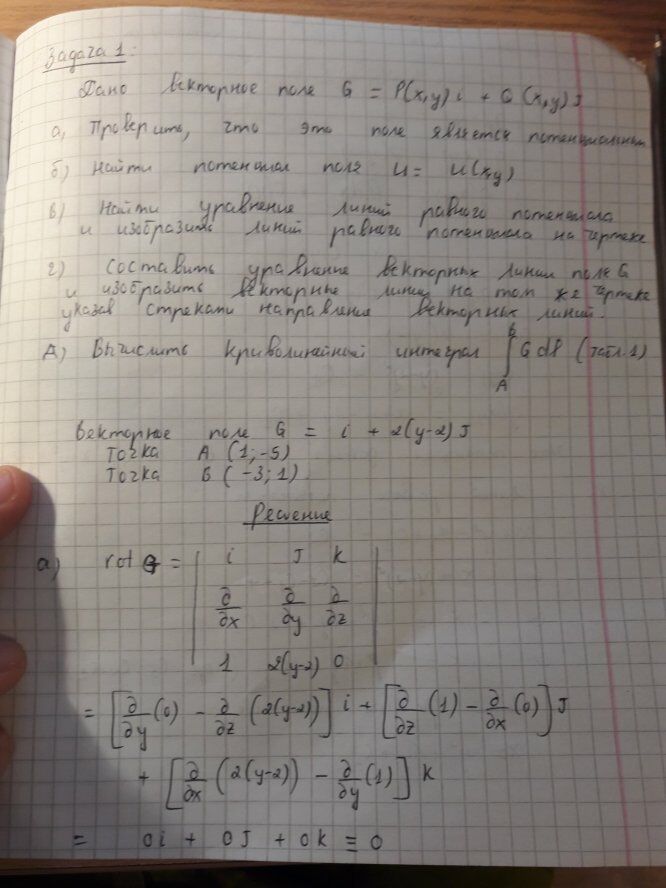 Задача 1:
Дано векторное поле G = P(x,y) i + Q (x,y) J
а, Проверить, что это поле является потенциальным
б) Найти потенциал поля U = U(x,y)
в) Найти уравнение линий равного потенциала
и изобразить линий равного потенциала на чертеже
г) Составить уравнение векторных линии поле G
и изобразить векторные линии на том же чертеже
указав стреками направления векторных линий.
Д) Вычислить криволинейный интеграл ∫ G dℓ (табл. 1)
B
A
Векторное поле G = i + 2(y-2) J
Точка A (1; -5)
Точка B (-3; 1)
Решение
а) rot G = | i J k |
∂/∂x ∂/∂y ∂/∂z
1 2(y-2) 0
= [∂/∂y (0) - ∂/∂z (2(y-2))] i + [∂/∂z (1) - ∂/∂x (0)] J
+ [∂/∂x (2(y-2)) - ∂/∂y (1)] k
= 0i + 0J + 0k ≡ 0